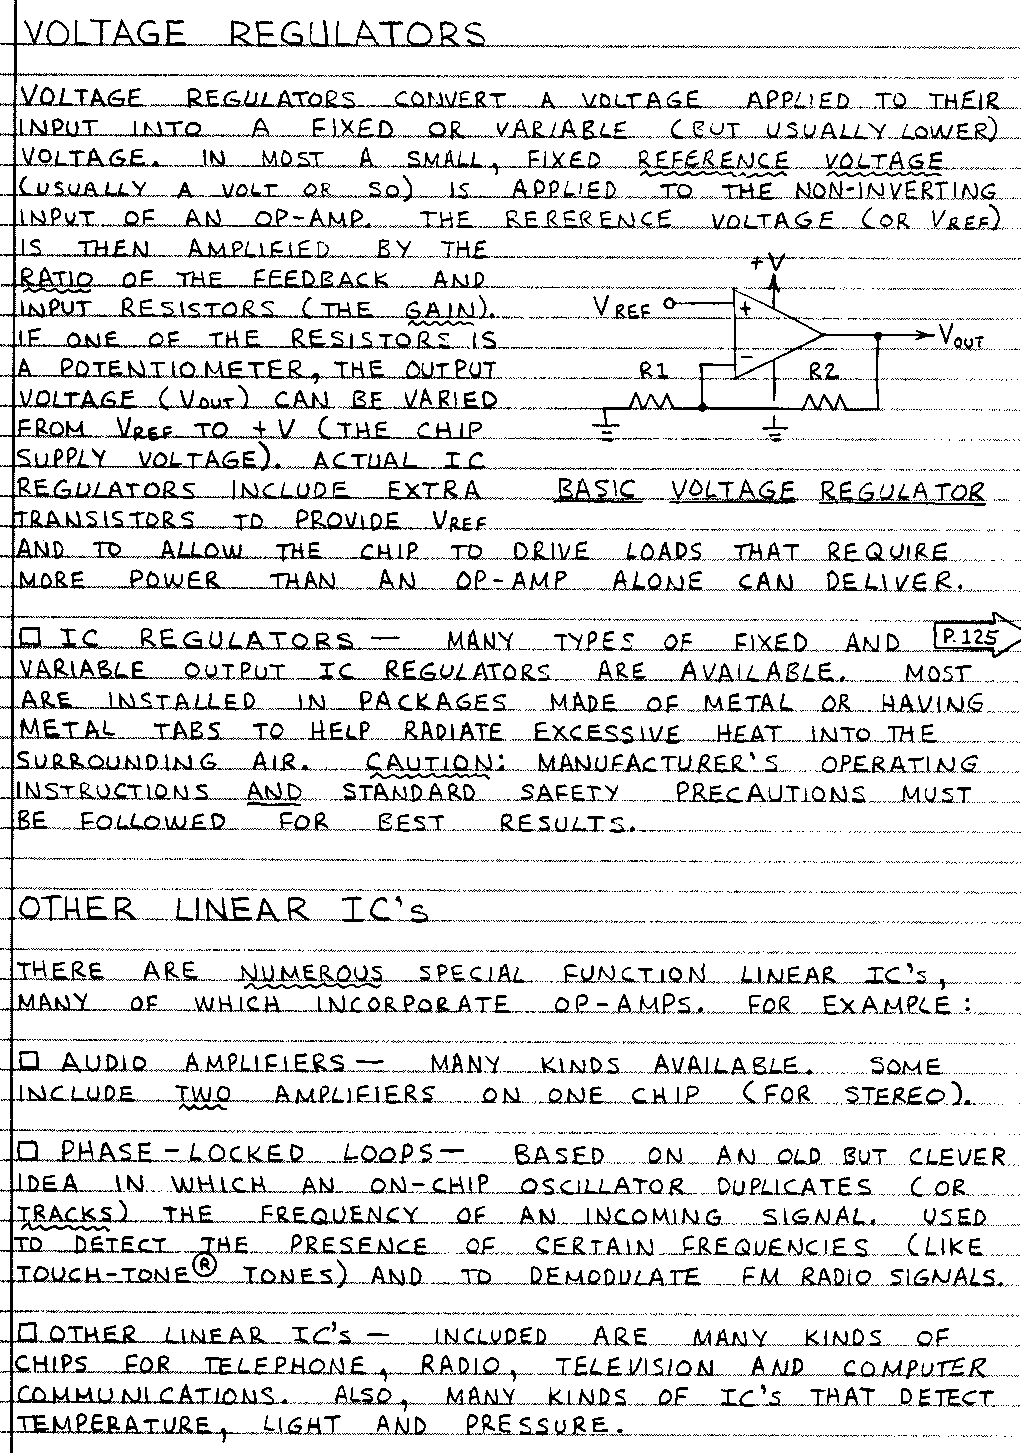 VOLTAGE REGULATORS
VOLTAGE REGULATORS CONVERT A VOLTAGE APPLIED TO THEIR
INPUT INTO A FIXED OR VARIABLE (BUT USUALLY LOWER)
VOLTAGE. IN MOST A SMALL, FIXED REFERENCE VOLTAGE
(USUALLY A VOLT OR SO) IS APPLIED TO THE NON-INVERTING
INPUT OF AN OP-AMP. THE RERERENCE VOLTAGE (OR VREF)
IS THEN AMPLIFIED BY THE
RATIO OF THE FEEDBACK AND
INPUT RESISTORS (THE GAIN).
IF ONE OF THE RESISTORS IS
A POTENTIOMETER, THE OUTPUT
VOLTAGE (VOUT) CAN BE VARIED
FROM VREF TO +V (THE CHIP
SUPPLY VOLTAGE). ACTUAL IC
REGULATORS INCLUDE EXTRA
TRANSISTORS TO PROVIDE VREF
AND TO ALLOW THE CHIP TO DRIVE LOADS THAT REQUIRE
MORE POWER THAN AN OP-AMP ALONE CAN DELIVER.
+V
VREF
+
-
VOUT
R1
R2
BASIC VOLTAGE REGULATOR
□ IC REGULATORS — MANY TYPES OF FIXED AND
P.125
VARIABLE OUTPUT IC REGULATORS ARE AVAILABLE. MOST
ARE INSTALLED IN PACKAGES MADE OF METAL OR HAVING
METAL TABS TO HELP RADIATE EXCESSIVE HEAT INTO THE
SURROUNDING AIR. CAUTION: MANUFACTURER'S OPERATING
INSTRUCTIONS AND STANDARD SAFETY PRECAUTIONS MUST
BE FOLLOWED FOR BEST RESULTS.
OTHER LINEAR IC's
THERE ARE NUMEROUS SPECIAL FUNCTION LINEAR IC's,
MANY OF WHICH INCORPORATE OP-AMPS. FOR EXAMPLE:
□ AUDIO AMPLIFIERS — MANY KINDS AVAILABLE. SOME
INCLUDE TWO AMPLIFIERS ON ONE CHIP (FOR STEREO).
□ PHASE-LOCKED LOOPS — BASED ON AN OLD BUT CLEVER
IDEA IN WHICH AN ON-CHIP OSCILLATOR DUPLICATES (OR
TRACKS) THE FREQUENCY OF AN INCOMING SIGNAL. USED
TO DETECT THE PRESENCE OF CERTAIN FREQUENCIES (LIKE
TOUCH-TONE® TONES) AND TO DEMODULATE FM RADIO SIGNALS.
□ OTHER LINEAR IC's — INCLUDED ARE MANY KINDS OF
CHIPS FOR TELEPHONE, RADIO, TELEVISION AND COMPUTER
COMMUNICATIONS. ALSO, MANY KINDS OF IC's THAT DETECT
TEMPERATURE, LIGHT AND PRESSURE.